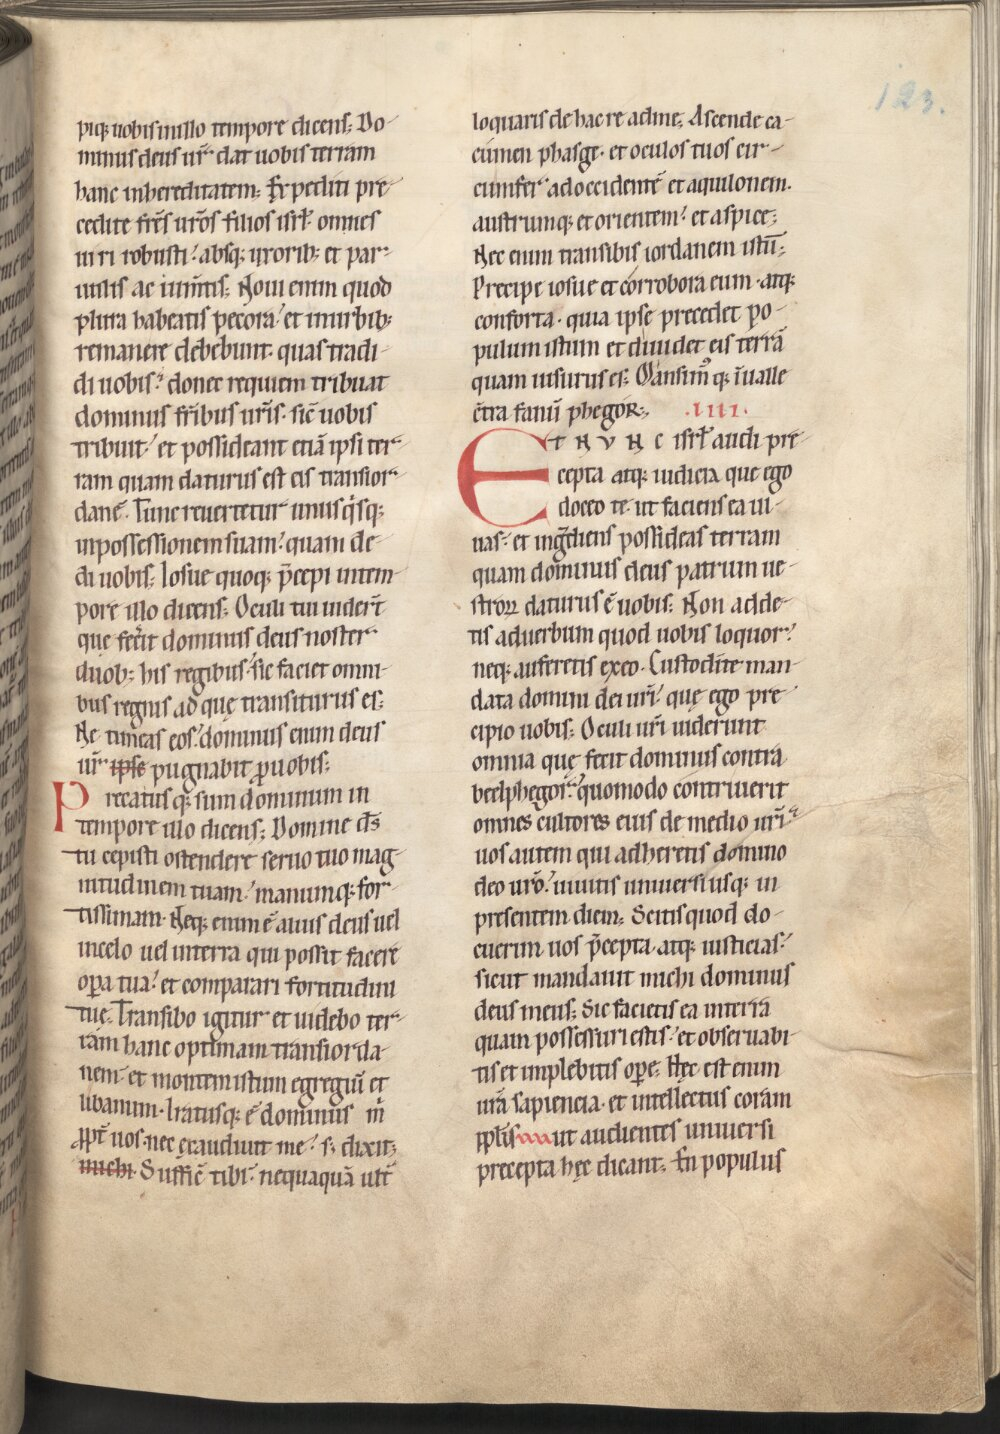 123.
piq; uobis in illo tempore dicens; Do-
minus deus ur̄ dat uobis terram
hanc inhereditatem; Expediti pre-
cedite frēs urōs filios isrl̄ omnes
uiri robusti. absq; uxorib; et par-
uulis ac ium̄tis; Noui enim quod
plura habeatis pecora. et inurbib;
remanere debebunt. quas tradi-
di uobis. donec requiem tribuat
dominus frībus urīs. sic̄ uobis
tribuit. et possideant etiā ipsi ter-
ram quam daturus est eis transior-
danē. Tunc reuertetur unusq̇sq;
inpossessionem suam. quam de-
di uobis; Iosue quoq; p̄cepi intem-
pore illo dicens; Oculi tui uider̄t
que fecit dominus deus noster
duob; his regibus. sic faciet omni-
bus regnis ad quę transiturus es;
Ne timeas eos. dominus enim deus
ur̄ ipse pugnabit ꝓ uobis;
Precatus q; sum dominum in
tempore illo dicens; Domine ds̄
tu cepisti ostendere seruo tuo mag-
nitudinem tuam. manumq; for-
tissimam. Neq; enim ē alius deus uel
incelo uel interra qui possit facere
oꝑa tua. et comparari fortitudini
tue. Transibo igitur et uidebo ter-
ram hanc optimam transiorda-
nem. et montem istum egregiū et
libanum. Iratusq; ē dominus m̄
ꝓpt̄ uos. nec exaudiuit me. s; dixit;
michi. Suffic̄ tibi. nequaquā ult̄
loquaris de hac re adme; Ascende ca-
cumen phasgę. et oculos tuos cir-
cumfer adoccidentē et aquilonem.
austrumq; et orientem. et aspice;
Nec enim transibis iordanem istū;
Precipe iosue et corrobora eum. atq;
conforta. quia ipse precedet po-
pulum istum et diuidet eis terrā
quam uisurus es; Mansim̄ q; iualle
c̄tra fanū phegor;, .IIII.
ET NUNC isrl̄ audi pre-
cepta atq; iudicia que ego
doceo te. ut faciens ea ui-
uas. et ingr̄diens possideas terram
quam dominus deus patrum ue-
stroꝝ daturus ē uobis; Non adde-
tis aduerbum quod uobis loquor.
neq; auferetis exeo. Custodite man-
data domini dei urī. quę ego pre-
cipio uobis; Oculi urī uiderunt
omnia quę fecit dominus contra
beelphegor. quomodo contriuerit
omnes cultores eius de medio urī.
uos autem qui adheretis domino
deo urō. uiuitis uniuersi usq; in
presentem diem; Scitis quod do-
cuerim uos p̄cepta. atq; iusticias.
sicut mandauit michi dominus
deus meus; Sic facietis ea interra
quam possessuri estis. et obseruabi-
tis et implebitis oꝑe; Hęc est enim
urā sapiencia. et intellectus coram
ppl̄is ut audientes uniuersi
precepta hęc dicant; En populus